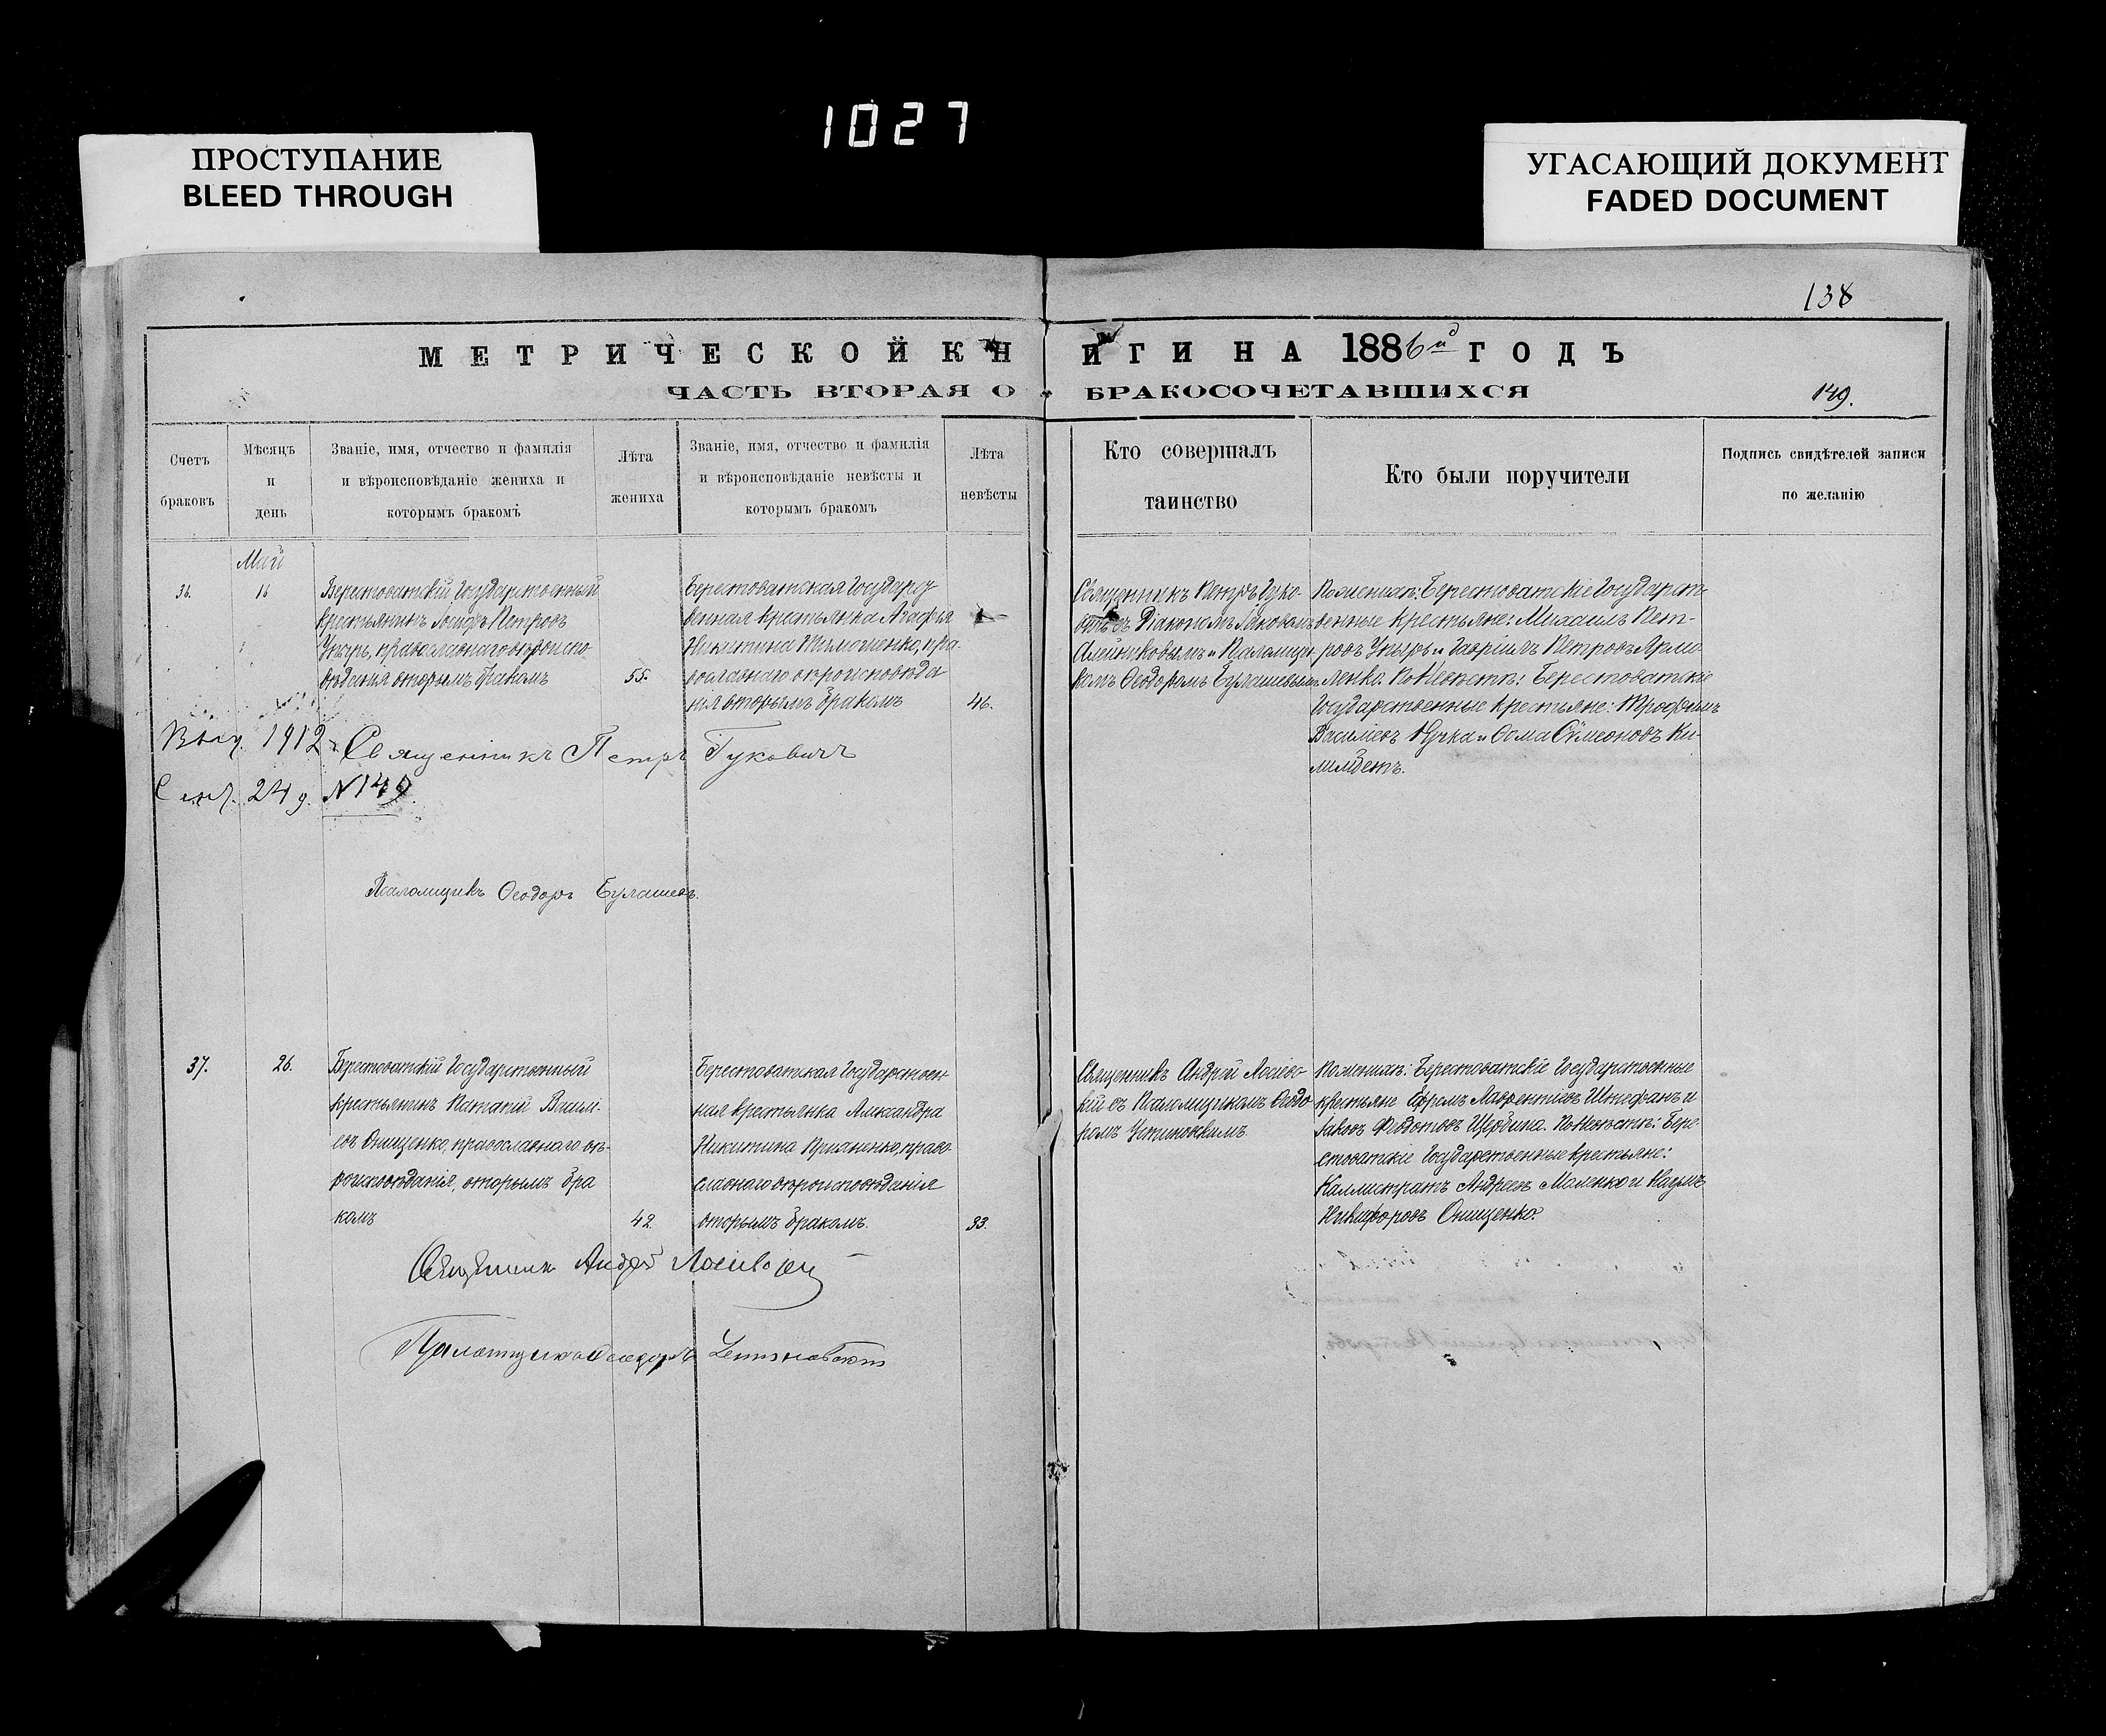 1027
ПРОСТУПАНИЕ
BLEED THROUGH
УГАСАЮЩИЙ ДОКУМЕНТ
FADED DOCUMENT
138
МЕТРИЧЕСКОЙ КНИГИ НА 1886й ГОДЪ
ЧАСТЬ ВТОРАЯ О БРАКОСОЧЕТАВШИХСЯ
149.
Счетъ
браковъ
Мѣсяцъ
и
день
Званіе, имя, отчество и фамилія
и вѣроисповѣданіе жениха и
которымъ бракомъ
Лѣта
жениха
Званіе, имя, отчество и фамилія
и вѣроисповѣданіе невѣсты и
которымъ бракомъ
Лѣта
невѣсты
Кто совершалъ
таинство
Кто были поручители
Подпись свидѣтелей записи
по желанію
Май
36.
16
Берестоватскій Государственный
крестьянинъ Іосифъ Петровъ
православнаго вѣроиспо
вѣданія вторымъ бракомъ
55.
Берестоватская Государст
венная крестьянка Агафія
Никитина пра-
вославнаго вѣроисповѣда
нія вторымъ бракомъ
46.
Священникъ Петръ Гуко
вичъ съ Діакономъ Іаковомъ
Алейниковымъ и Псаломщи
комъ Ѳеодоромъ Булашевымъ
По женихѣ: Берестоватскіе Государст
венные крестьяне: Михаилъ Пет-
ровъ и Гавріилъ Петровъ Ярмо
ленко. По Невѣстѣ: Берестоватскіе
Государственные крестьяне: Трофимъ
Васильевъ и Ѳома Сѵмеоновъ
Выд. 1912 г.
Сент. 24 д. № 149.
Священникъ Петръ Гуковичъ
Псаломщикъ Ѳеодоръ Булашевъ.
37.
26.
Берестоватскій Государственный
крестьянинъ Васили-
евъ Онищенко, православнаго вѣ-
роисповѣданія, вторымъ бра
комъ
42.
Берестоватская Государствен
ная крестьянка Александра
Никитина право
славнаго вѣроисповѣданія
вторымъ бракомъ.
33.
Священникъ Андрей Лосіевс
кій съ Псаломщикомъ Ѳеодо
ромъ Устиновскимъ
По женихѣ: Берестоватскіе Государственные
крестьяне Ефремъ Лаврентіевъ Штефанъ и
Іаковъ Федотовъ Щербина. По Невѣстѣ: Бере-
стоватскіе Государственные крестьяне:
Каллистратъ Андреевъ и Наумъ
Никифоровъ Онищенко.
Священникъ Андрей Лосіевскій
Псаломщикъ Ѳеодоръ Устиновскій